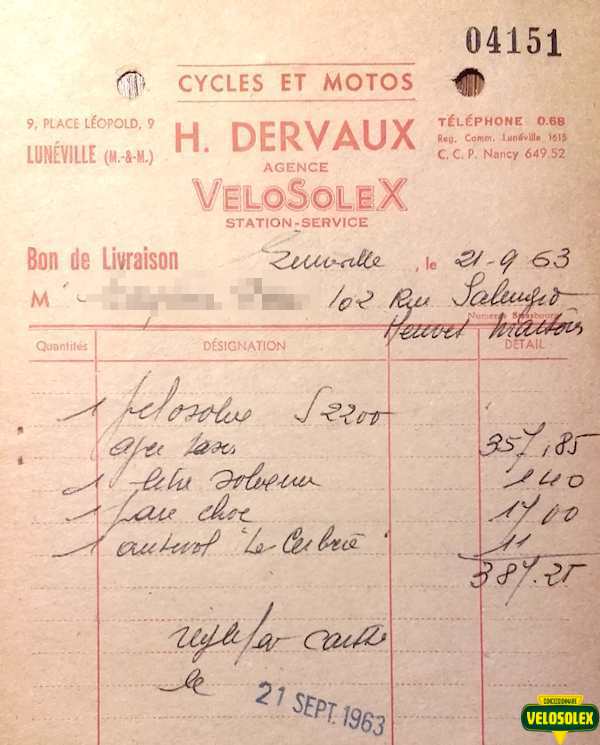 04151
CYCLES ET MOTOS
9, PLACE LÉOPOLD, 9
LUNÉVILLE (M.-&-M.)
H. DERVAUX
AGENCE
VELOSOLEX
STATION-SERVICE
TÉLÉPHONE 0.68
Reg. Comm. Lunéville 1615
C. C. P. Nancy 649.52
Bon de Livraison Lunéville, le 21-9 63
M 102 Rue Salengro
Numeros Strasbourg
Quantités DÉSIGNATION DÉTAIL
1 velosolex S 2200
357,85
1 140
1 pare choc 1700
1 antivol "Le Cerbère" 11
387.25
le
21 SEPT. 1963
CONCESSIONNAIRE
VELOSOLEX